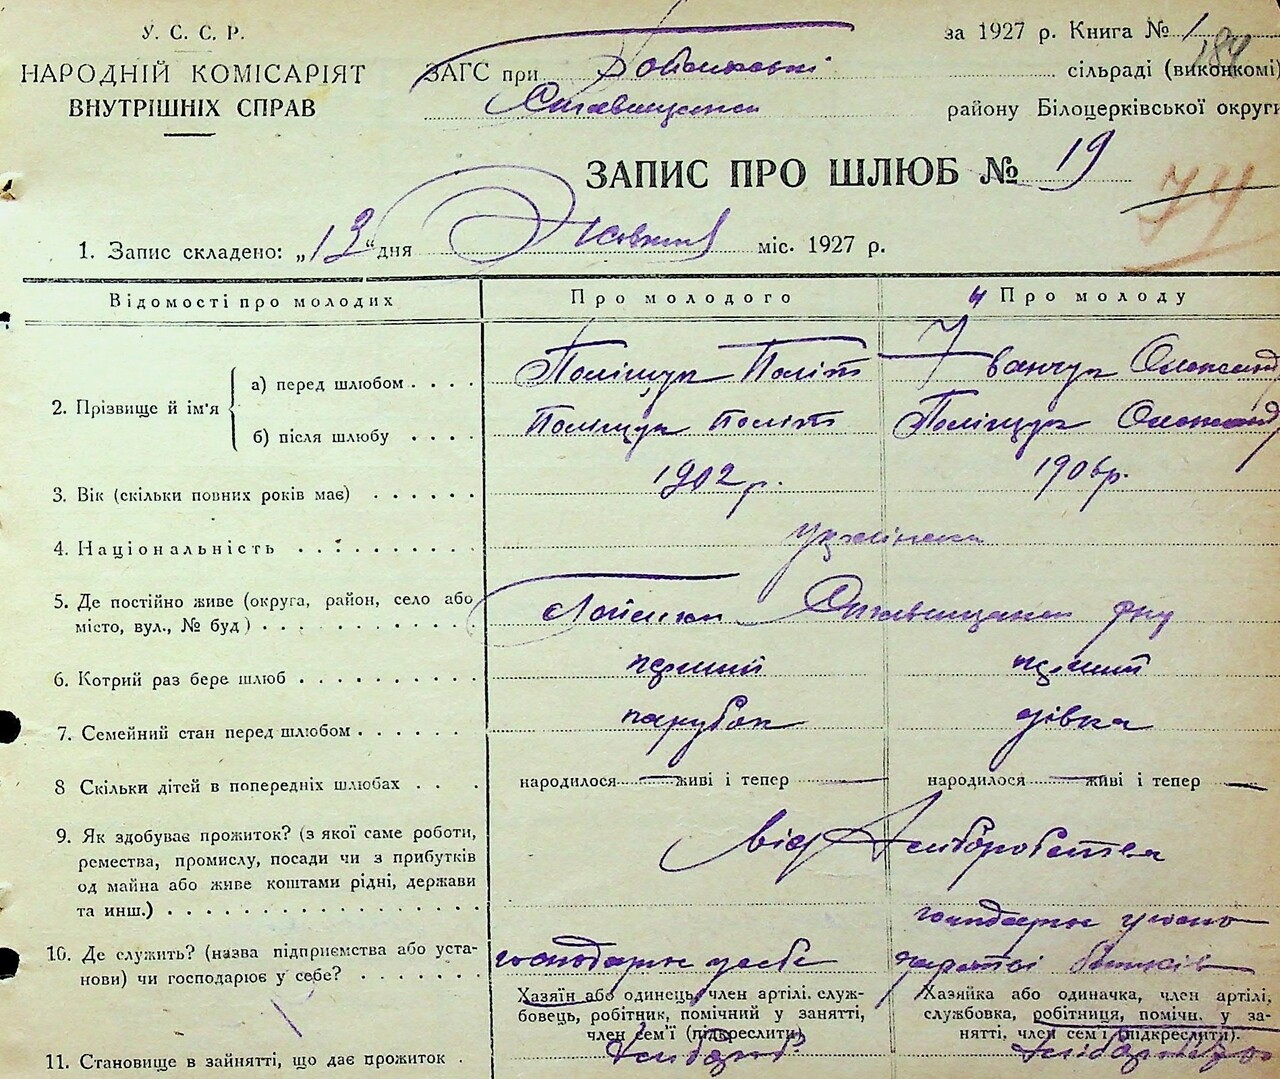 У. С. С. Р.
НАРОДНІЙ КОМІСАРІЯТ
ВНУТРІШНІХ СПРАВ
за 1927 р. Книга № 1
184
ЗАГС при сільраді (виконкомі)
району Білоцерківської округи
ЗАПИС ПРО ШЛЮБ № 19
74
1. Запис складено: „13“ дня Жовтня міс. 1927 р.
Відомості про молодих
Про молодого
Про молоду
2. Прізвище й ім'я
а) перед шлюбом
Поліщук Політ
Іванчук Олександ
б) після шлюбу
Поліщук Політ
Поліщук Олександ
3. Вік (скільки повних років має)
1902 р.
1906 р.
4. Національність
українська
5. Де постійно живе (округа, район, село або
місто, вул., № буд)
Ставищанськ р-ну
6. Котрий раз бере шлюб
перший
перший
7. Семейний стан перед шлюбом
парубок
дівка
8 Скільки дітей в попередніх шлюбах
народилося — живі і тепер —
народилося — живі і тепер —
9. Як здобуває прожиток? (з якої саме роботи,
ремества, промислу, посади чи з прибутків
од майна або живе коштами рідні, держави
та инш.)
від хліборобства
10. Де служить? (назва підприємства або уста-
нови) чи господарює у себе?
господарює у себе
господарює у
батьків
11. Становище в зайнятті, що дає прожиток
Хазяїн або одинець, член артілі, служ-
бовець, робітник, помічний у занятті,
член сем'ї (підкреслити)
хлібороб
Хазяйка або одиначка, член артілі,
службовка, робітниця, помічн. у за-
нятті, член сем'ї (підкреслити).